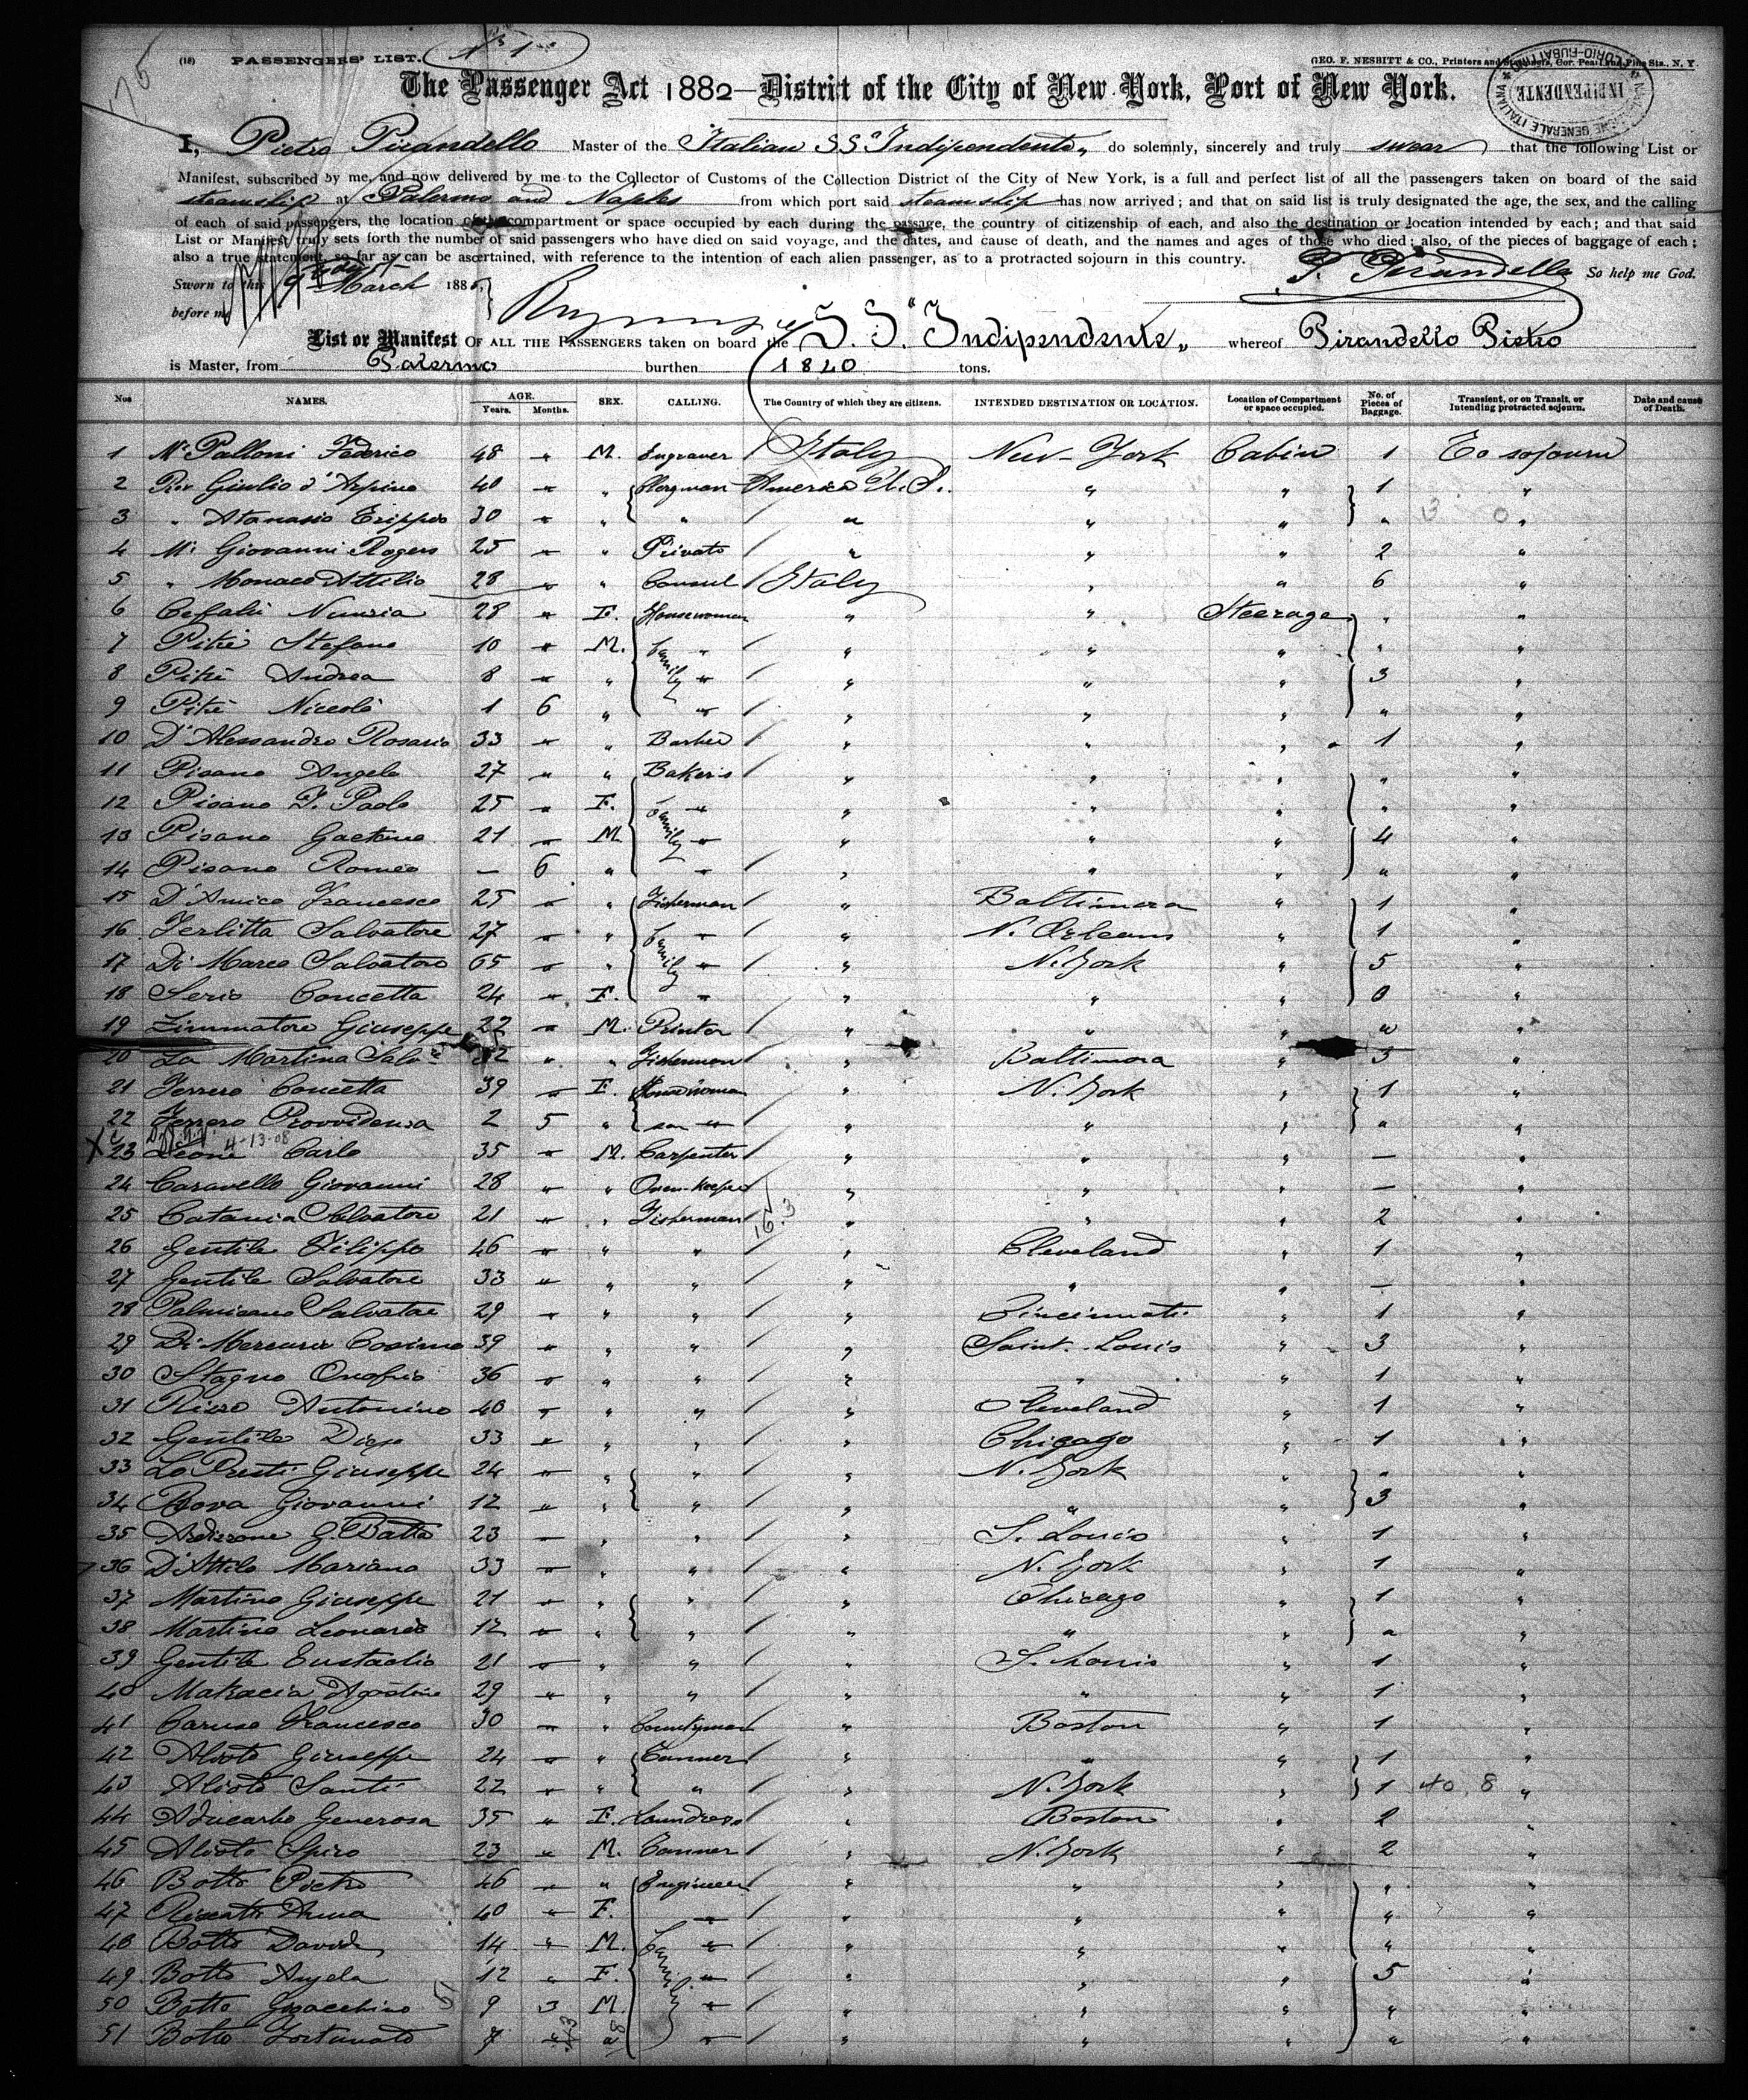 175
(18) PASSENGERS' LIST.
GEO. F. NESBITT & CO., Printers and Stationers, Cor. Pearl and Pine Sts., N. Y.
The Passenger Act 1882—District of the City of New York, Port of New York.
INDIPENDENTE
I, Pietro Pirandello Master of the Italian SS "Indipendente" do solemnly, sincerely and truly swear that the following List or
Manifest, subscribed by me, and now delivered by me to the Collector of Customs of the Collection District of the City of New York, is a full and perfect list of all the passengers taken on board of the said
steamship at Palermo and Naples from which port said steamship has now arrived; and that on said list is truly designated the age, the sex, and the calling
of each of said passengers, the location of the compartment or space occupied by each during the passage, the country of citizenship of each, and also the destination or location intended by each; and that said
List or Manifest truly sets forth the number of said passengers who have died on said voyage, and the dates, and cause of death, and the names and ages of those who died; also, of the pieces of baggage of each;
also a true statement, so far as can be ascertained, with reference to the intention of each alien passenger, as to a protracted sojourn in this country.
P. Pirandello So help me God.
Sworn to this 9 March 188
before me
List or Manifest OF ALL THE PASSENGERS taken on board the S. S. "Indipendente" whereof Pirandello Pietro
is Master, from Palermo burthen 1820 tons.
Nos NAMES. AGE. Years. Months. SEX. CALLING. The Country of which they are citizens. INTENDED DESTINATION OR LOCATION. Location of Compartment or space occupied. No. of Pieces of Baggage. Transient, or on Transit, or Intending protracted sojourn. Date and cause of Death.
1 Mr Palloni Federico 48 " M. Engraver Italy New-York Cabin 1 To sojourn
2 Rev Giulio d'Arpino 40 " " Clergman America U.S. " " 1 "
3 " Atanasio 30 " " " " " " " "
4 Mr Giovanni Rogers 25 " " Privato " " " 2 "
5 " Monaco Attilio 28 " " Consul Italy " " 6 "
6 Cefalù Nunzia 28 " F. Housewoman " " Steerage " "
7 Pitrè Stefano 10 " M. family " " " " " "
8 Pitrè Andrea 8 " " " " " " 3 "
9 Pitrè Niccolò 1 6 " " " " " " "
10 D'Alessandro Rosario 33 " " Barber " " " 1 "
11 Pisano Angelo 27 " " Bakers " " " " "
12 Pisano F. Paolo 25 " F. family " " " " " "
13 Pisano Gaetano 21 " M " " " " 4 "
14 Pisano Romeo — 6 " " " " " " "
15 D'Amico Francesco 25 " " Fisherman " Baltimora " 1 "
16 Ferlitta Salvatore 27 " " family " " N. Orleans " 1 "
17 Di Marco Salvatore 65 " " " " N. York " 5 "
18 Serio Concetta 24 " F. " " " " 0 "
19 Zimmatore Giuseppe 22 " M. Printer " " " " "
20 La Martina Salv.re " " Fisherman " Baltimora " 3 "
21 Ferrero Concetta 39 " F. Housewoman " N. York " 1 "
22 Ferrero Provvidenza 2 5 " " " " " " "
4-13-08
X 23 Leone Carlo 35 " M. Carpenter " " " — "
24 Caravello Giovanni 28 " " " " " — "
25 Catania Salvatore 21 " " Fisherman " " " 2 "
26 Gentile Filippo 46 " " " " Cleveland " 1 "
27 Gentile Salvatore 33 " " " " " " — "
28 Palmisano Salvatore 29 " " " " Cincinnati " 1 "
29 Di Mercurio Cosimo 39 " " " " Saint. Louis " 3 "
30 Stagno Onofrio 36 " " " " " " 1 "
31 Risso Antonino 40 " " " " Cleveland " 1 "
32 Gentile Diego 33 " " " " Chicago " 1 "
33 Lo Presti Giuseppe 24 " " " " N. York " " "
34 Bova Giovanni 12 " " " " " " 3 "
35 Ardizzone G. Batta 23 " " " " S. Louis " 1 "
36 D'Attilo Mariano 33 " " " " N. York " 1 "
37 Martino Giuseppe 21 " " " " Chicago " 1 "
38 Martino Leonardo 12 " " " " " " " "
39 Gentile Eustachio 21 " " " " S. Louis " 1 "
40 Matracia Agostino 29 " " " " " " 1 "
41 Caruso Francesco 30 " " Countryman " Boston " 1 "
42 Alioto Giuseppe 24 " " Tanner " " " 1 "
43 Alioto Santi 22 " " " " N. York " 1 "
44 Generosa 35 " F. Laundress " Boston " 2 "
45 Alioto Spiro 23 " M. Tanner " N. York " 2 "
46 Botto Pietro 46 " " Engineer " " " " "
47 Anna 40 " F. " " " " " "
48 Botto Davide 14 " M. family " " " " " "
49 Botto Angela 12 " F. " " " " 5 "
50 Botto Gioacchino 9 3 M. " " " " " "
51 Botto Fortunato " " " " " " "